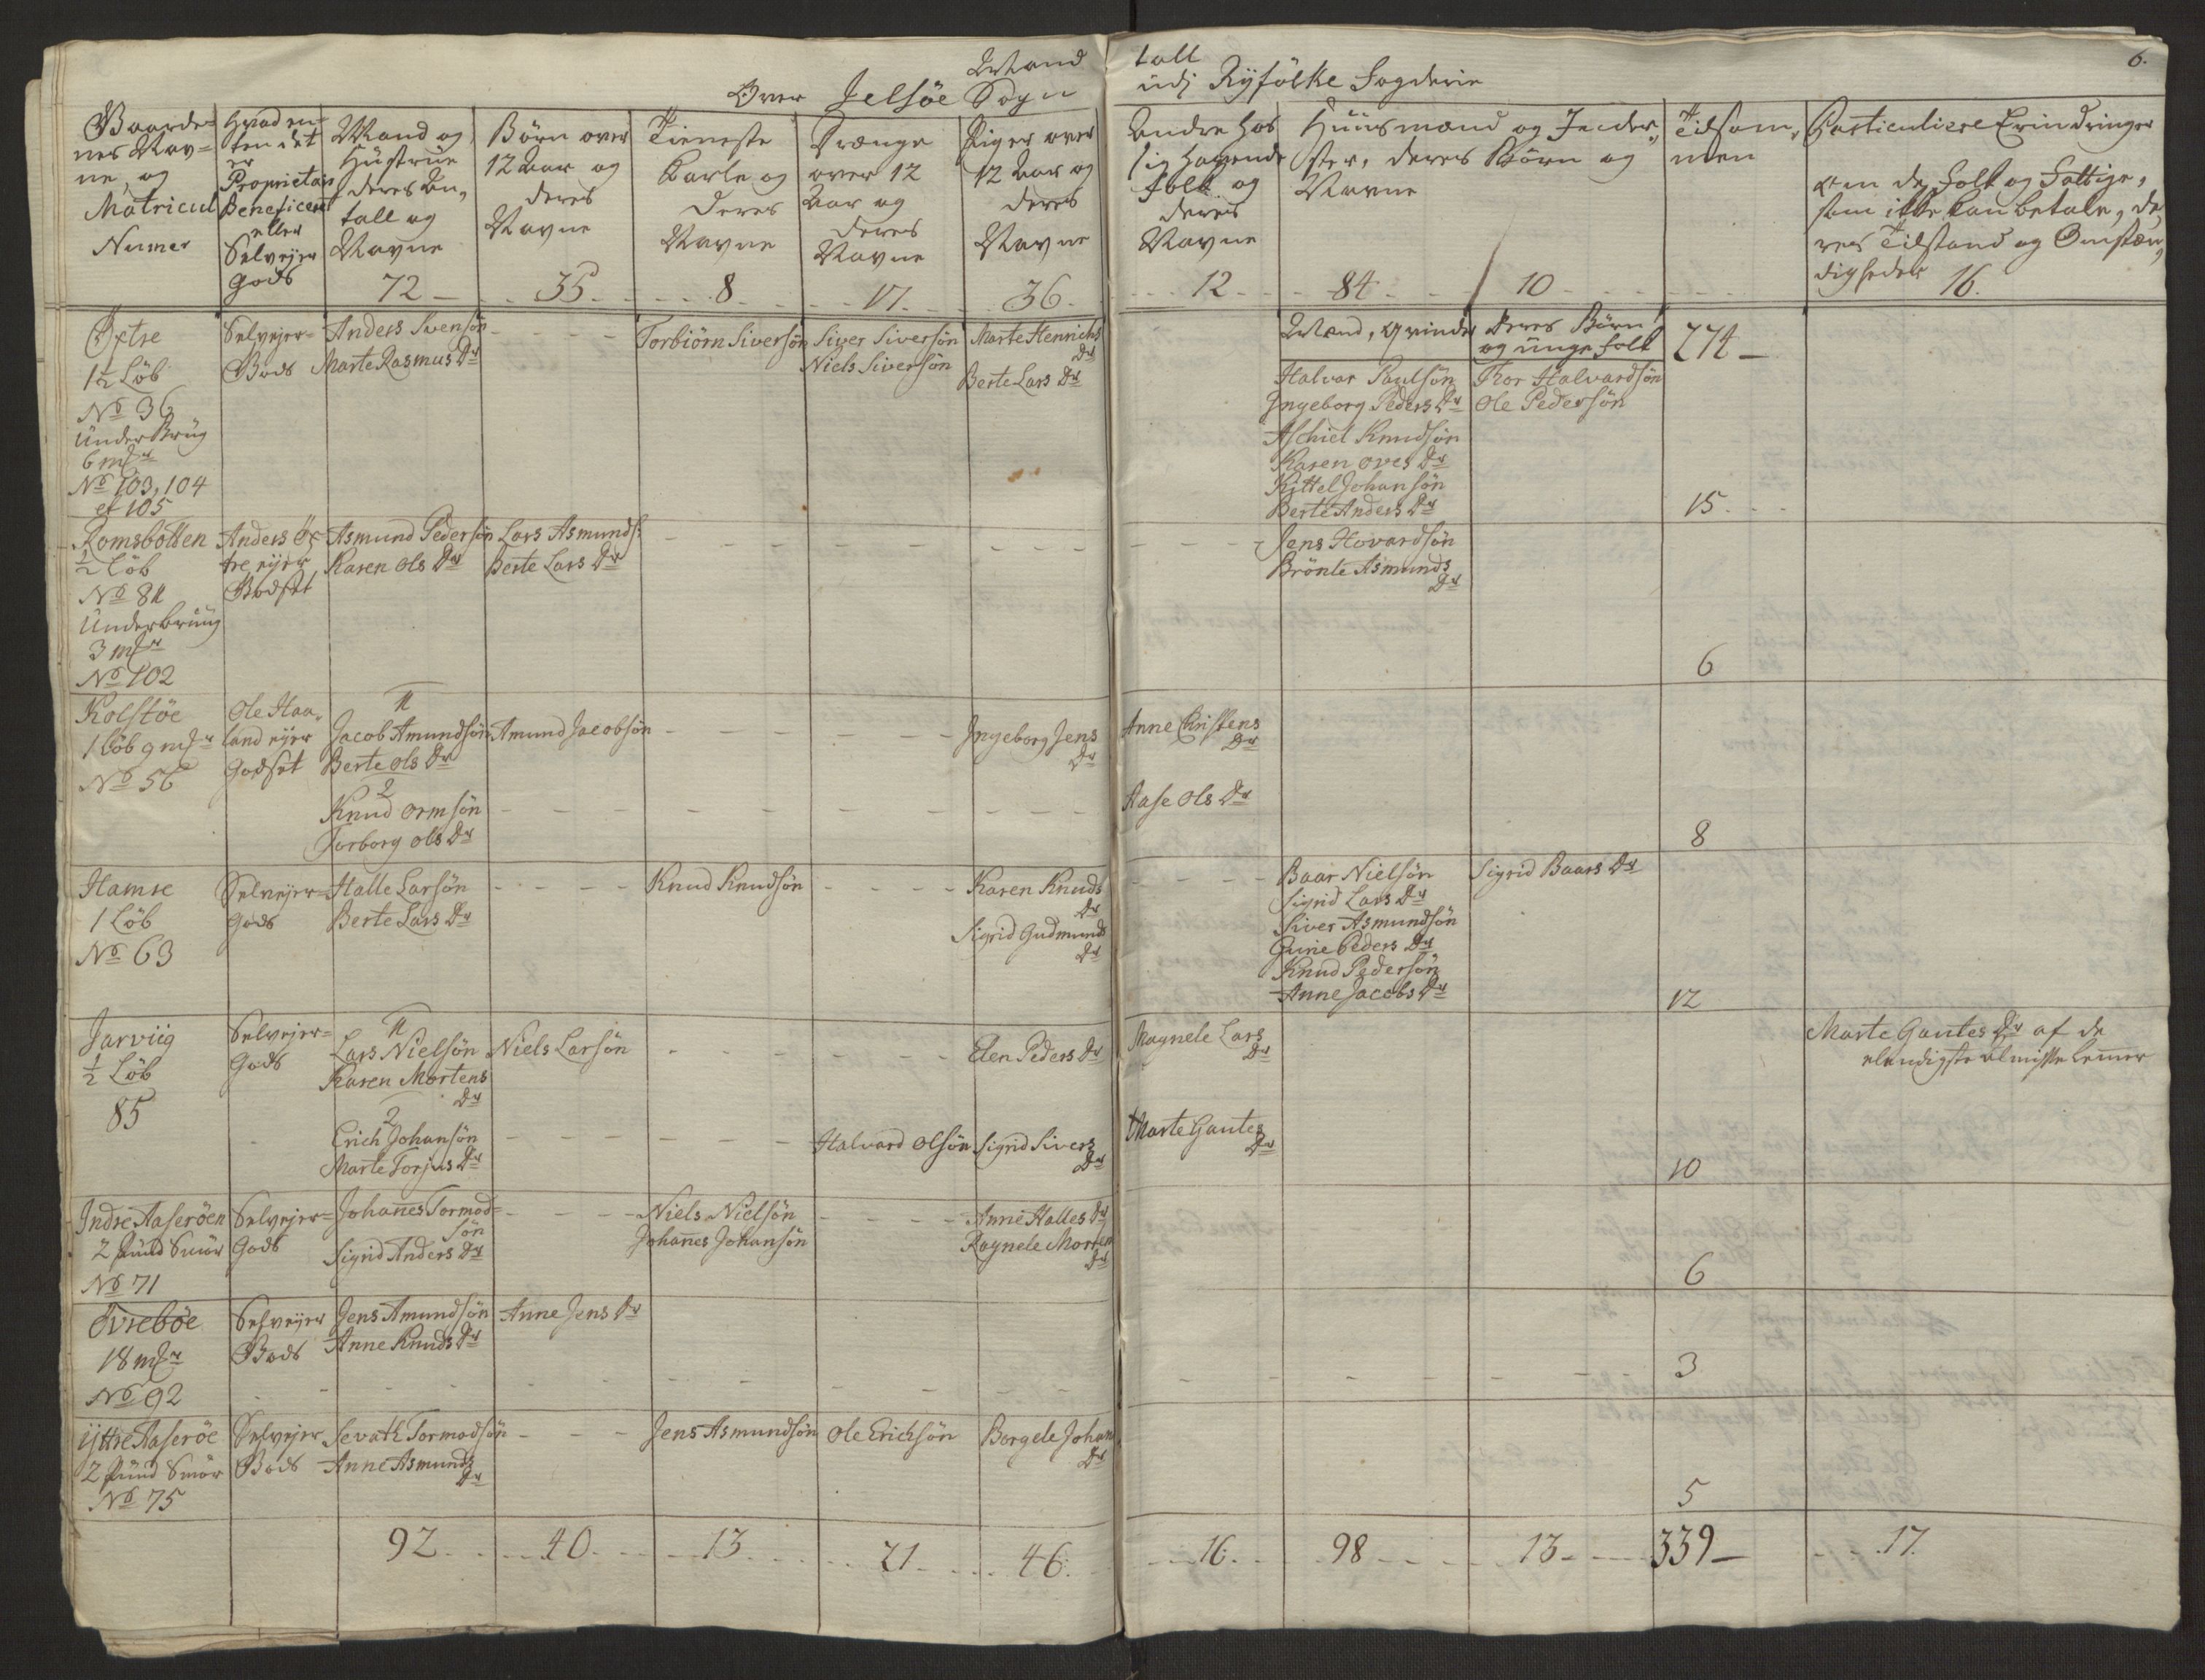 Mand tall
Over Jelsöe Sogn udj Ryfölke Fogderie
6.
Gaarde-
nes Nav-
ne, og
Matricul
Numer
Hvad en-
ten det
er
Proprietair
Beneficeret
eller
Selvejer
Gods
Mand og
Hustrue
deres An-
tall og
Navne
72
Börn over
12 Aar og
deres
Navne
35
Tieneste
Karle og
deres
Navne
8
Drænge
over 12
Aar og
deres
Navne
17
Piger over
12 Aar og
deres
Navne
36
Andre hos
sig havende
folk og
deres
Navne
12
Huusmænd og Inder-
ster, deres Börn og
Navne
84
10
Tilsam-
men
Particuliere Erindringer
om de Folk og Fattige,
som ikke kan betale, de-
res Tilstand og Omstæn-
digheder 16.
Mænd, Qvinder
Deres Börn
og unge folk
274
Östre
1½ Löb
No 36
Underbrug
6 mkr
No 103, 104
et 105
Selvejer-
Gods
Anders Svensön
Marte Rasmus Dr
Torbiörn Siversön
Siver Siversön
Niels Siversön
Marte Henrichs
Dr
Berte Lars Dr
Halvor Paulsön
Ingeborg Peders Dr
Aschiel Knudsön
Karen Oves Dr
Kittel Johansön
Berte Anders Dr
Thor Halvardsön
Ole Pedersön
15
Romsbotten
½ Löb
No 84
Underbruug
3 mkr
No 102
Anders Ös-
tre ejer
Godset
Asmund Pedersön
Karen Ols Dr
Lars Asmunds:
Berte Lars Dr
Jens Hovardsön
Brönle Asmunds
Dr
6
Kolstöe
1 Löb 9 mkr
No 56
Ole Haa-
land ejer
Godset
1
Jacob Amundsön
Berte Ols Dr
2
Knud Ormsön
Torborg Ols Dr
Amund Jacobsön
Ingeborg Jens
Dr
Anne Christens
Dr
Aase Ols Dr
8
Hamre
1 Löb
No 63
Selvejer-
Gods
Halle Larsön
Berte Lars Dr
Knud Knudsön
Karen Knuds
Dr
Sigrid Gudmunds
Dr
Baar Nielsön
Sigrid Lars Dr
Siver Asmundsön
Gurie Peders Dr
Knud Pedersön
Anne Jacobs Dr
Sigrid Baars Dr
12
Jarviig
½ Löb
85
Selvejer-
Gods
1
Lars Nielsön
Karen Mortens
Dr
2
Erich Johansön
Marte Torjus Dr
Niels Larsön
Halvard Olsön
Elen Peders Dr
Sigrid Sivers
Dr
Magnele Lars
Dr
Marte Gautes
Dr
10
Marte Gautes Dr af de
elendigste Almisse Lemmer
Indre Aaseröen
2 Pund Smör
No 71
Selvejer-
Gods
Johannes Tormod-
sön
Sigrid Anders Dr
Niels Nielsön
Johannes Johansön
Anne Halles Dr
Ragnele Morten
Dr
6
Övreböe
18 mkr
No 92
Selvejer
Gods
Jens Amundsön
Anne Knuds Dr
Anne Jens Dr
3
Yttre Aaseröe
2 Pund Smör
No 75
Selvejer
Gods
Sevath Tormodsön
Anne Asmunds
Dr
Jens Asmundsön
Ole Erichsön
Borgele Johan
Dr
5
92
40
13
21
46
16
98
13
339
17